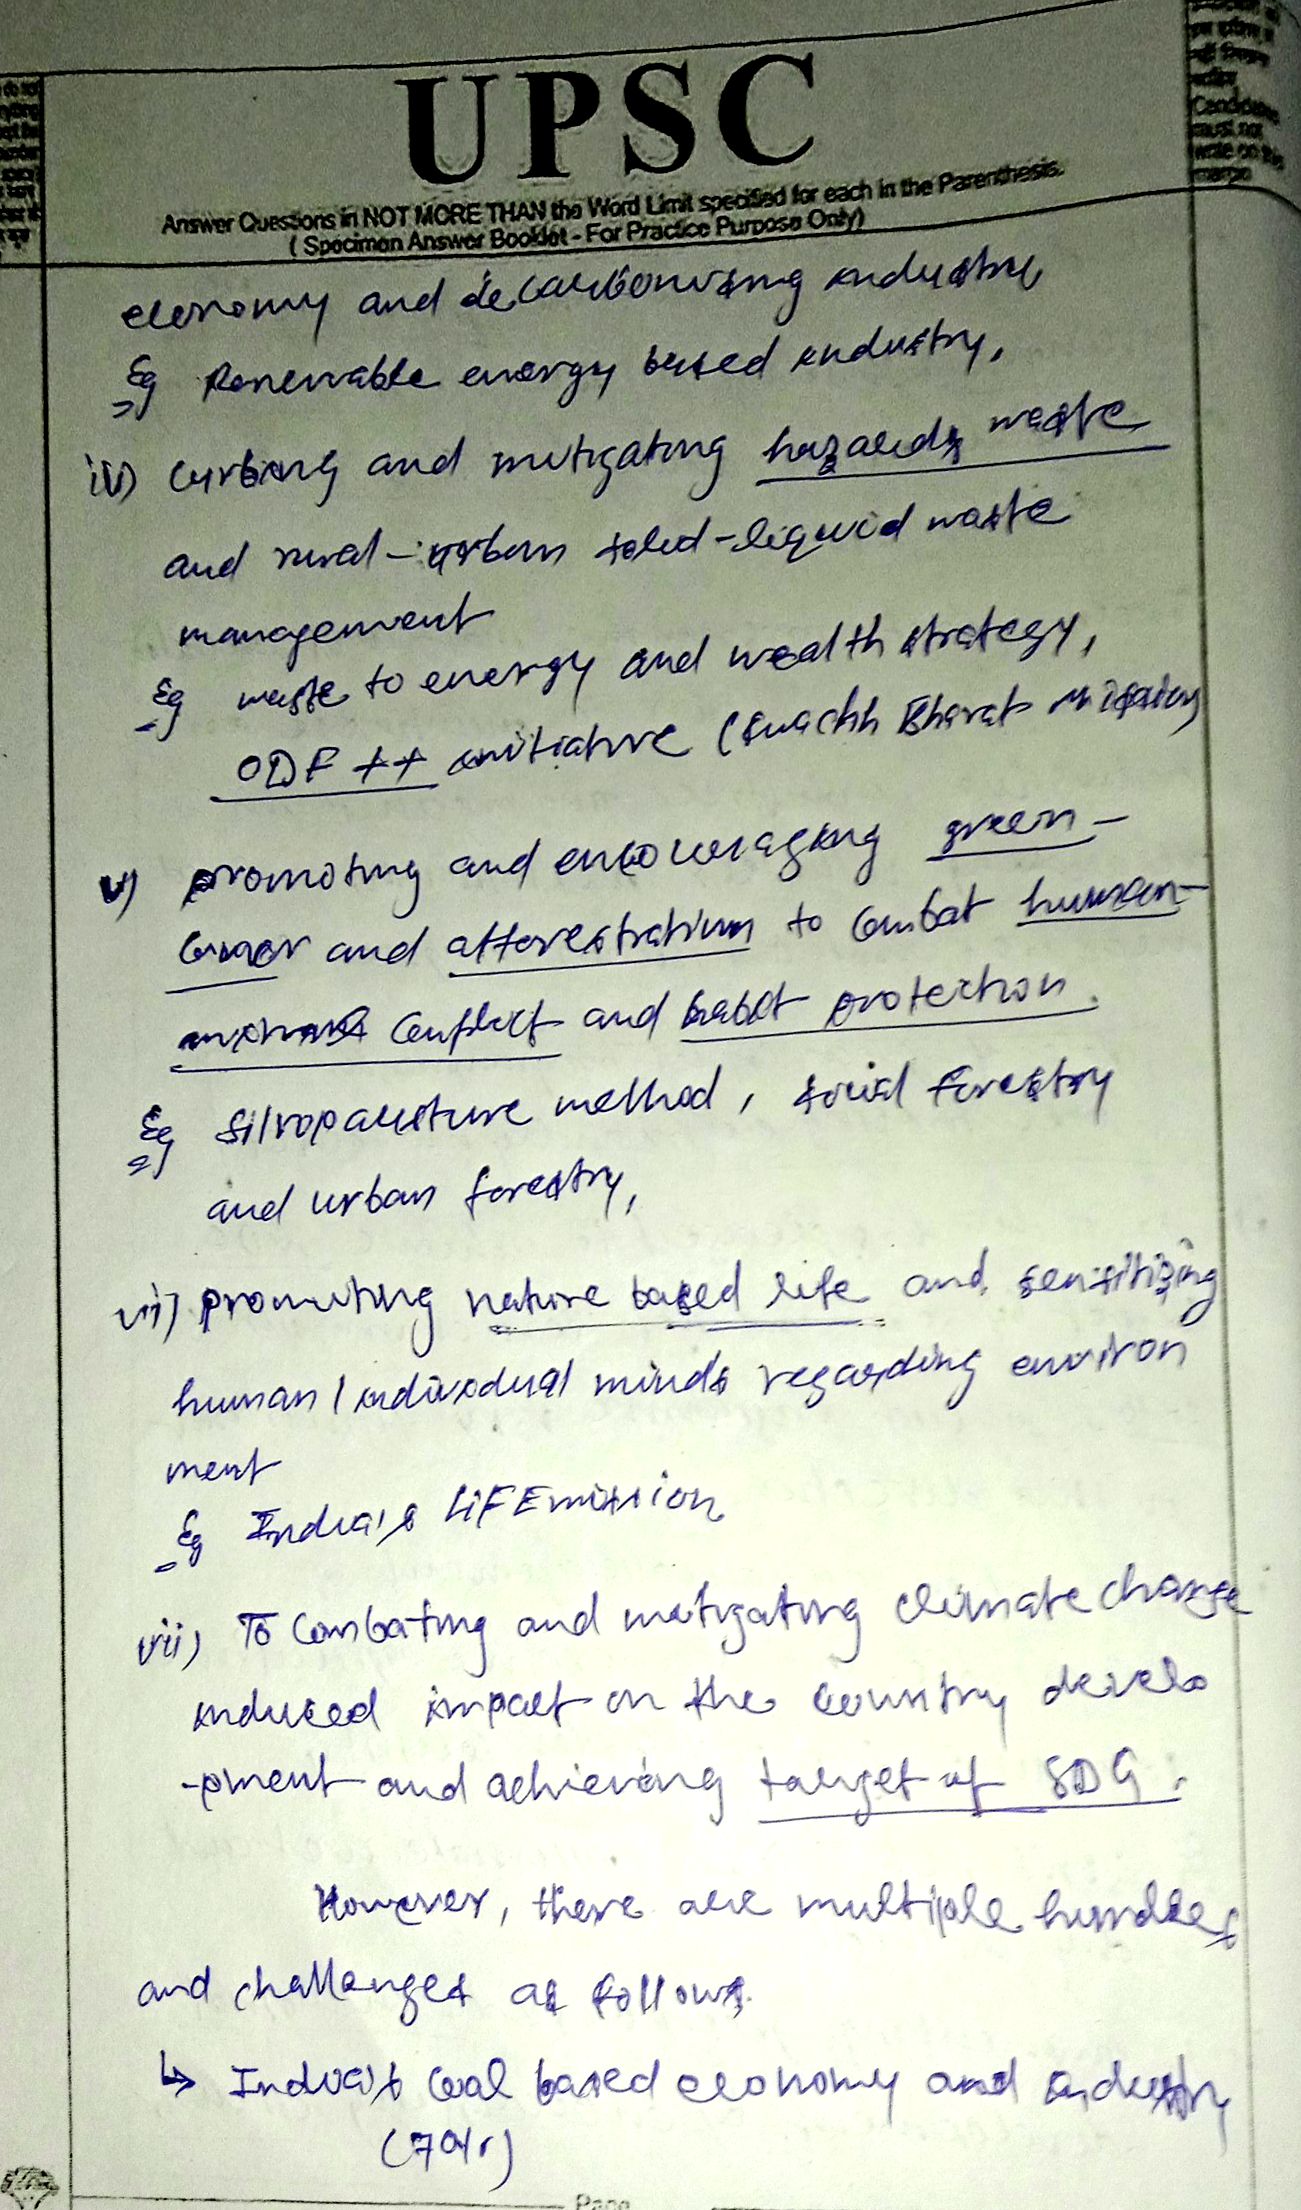 UPSC
Answer Questions in NOT MORE THAN the Word Limit specified for each in the Parenthesis.
( Specimen Answer Booklet - For Practice Purpose Only)
Candidates
must not
write on this
margin
economy and decarbonising industry
Eg Renewable energy based industry,
iv) curbing and mitigating hazards waste
and rural-urban solid-liquid waste
management
Eg waste to energy and wealth strategy,
ODF ++ initiative (Swachh Bharat Mission)
v) promoting and encouraging green-
cover and afforestration to combat human-
animal conflict and habit protection.
Eg Silvopausture method, social forestry
and urban forestry,
vi) promoting nature based life and sensitizing
human / individual minds regarding environ
ment
Eg India's LiFE mission
vii) To Combating and mitigating climate change
induced impact on the country develo
-pment and achieving target of SDG.
However, there are multiple hurdles
and challenges as follows.
↳ India's coal based economy and industry
(70%)
Page